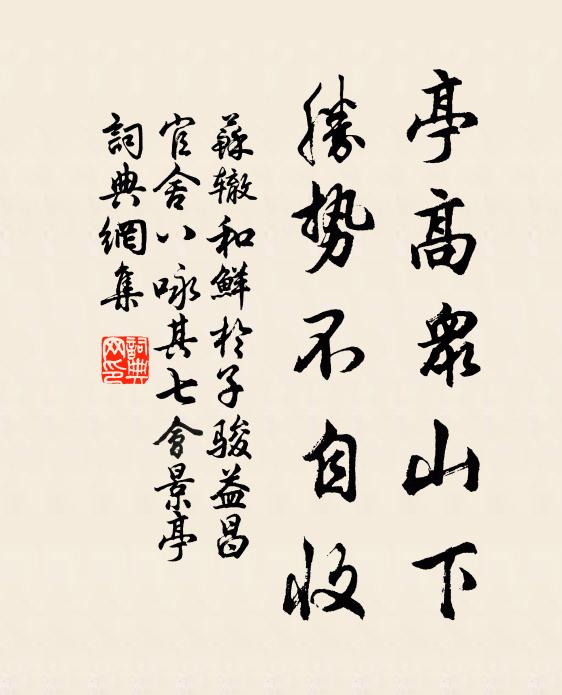 亭高眾山下
勝勢不自收
蘇辙和鮮於子駿益昌
官舍八咏其七會景亭
詞典網集
詞典网印